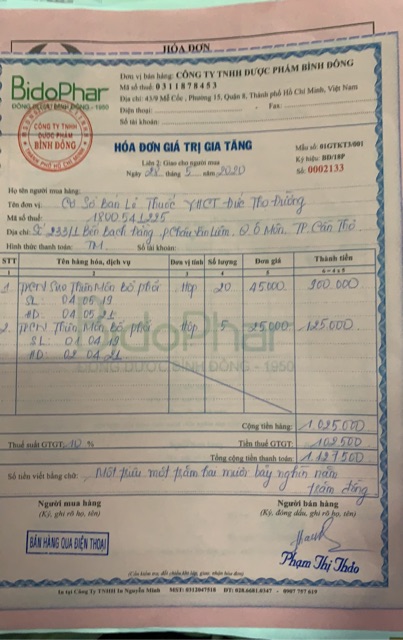 HÓA ĐƠN
BidoPhar
ĐÔNG DƯỢC BÌNH ĐÔNG - 1950
CÔNG TY TNHH
DƯỢC PHẨM
BÌNH ĐÔNG
Đơn vị bán hàng: CÔNG TY TNHH DƯỢC PHẨM BÌNH ĐÔNG
Mã số thuế: 0311878453
Địa chỉ: 43/9 Mễ Cốc, Phường 15, Quận 8, Thành phố Hồ Chí Minh, Việt Nam
Điện thoại: Fax:
Số tài khoản:
HÓA ĐƠN GIÁ TRỊ GIA TĂNG
Mẫu số: 01GTKT3/001
Liên 2: Giao cho người mua
Ký hiệu: BD/18P
Ngày 28 tháng 5 năm 2020
Số: 0002133
Họ tên người mua hàng:
Tên đơn vị: Cơ Sở Bán Lẻ Thuốc YHCT Đức Thọ Đường
Mã số thuế: 1800541225
Địa chỉ: Số 233/1 Bến Bạch Đằng, P Châu Văn Liêm, Q Ô Môn, TP Cần Thơ
Hình thức thanh toán: TM Số tài khoản:
STT Tên hàng hóa, dịch vụ Đơn vị tính Số lượng Đơn giá Thành tiền
1 2 3 4 5 6 = 4 x 5
1 Thiên Môn Bổ phổi Hộp 20 45000 900.000
SL: 04 05 19
HD: 04 05 21
2 Thiên Môn Bổ phổi Hộp 5 25000 125.000
SL: 01 04 19
HD: 02 04 21
BidoPhar
ĐÔNG DƯỢC BÌNH ĐÔNG - 1950
Cộng tiền hàng: 1 025000
Thuế suất GTGT: 10 % Tiền thuế GTGT: 102500
Tổng cộng tiền thanh toán: 1 127500
Số tiền viết bằng chữ: Một triệu một trăm hai mươi bảy nghìn năm
trăm đồng
Người mua hàng Người bán hàng
(Ký, ghi rõ họ, tên) (Ký, đóng dấu, ghi rõ họ, tên)
BÁN HÀNG QUA ĐIỆN THOẠI
Phạm Thị Thảo
(Cần kiểm tra, đối chiếu khi lập, giao, nhận hóa đơn)
In tại Công Ty TNHH In Nguyễn Minh MST: 0312047518 ĐT: 028.6681.0347 - 0907 797 619